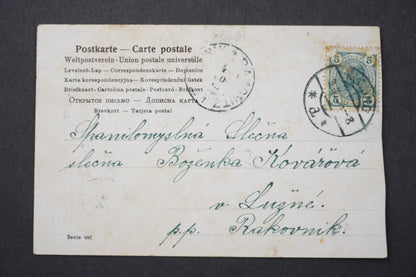 Postkarte — Carte postale
Weltpostverein - Union postale universelle
Levelező-Lap — Correspondenzkarte — Dopisnice
Karta korespondencyjna — Korespondenční lístek
Briefkaart - Cartolina postale - Postcard - Brevkort
Открытое письмо — Дописна карта
Brevkort — Tarjeta postal
RAKONITZ
5 5
Spanilomyslná Slečna
slečna Boženka Kovářová
v Lužné.
p.p. Rakovník.
Serie 091